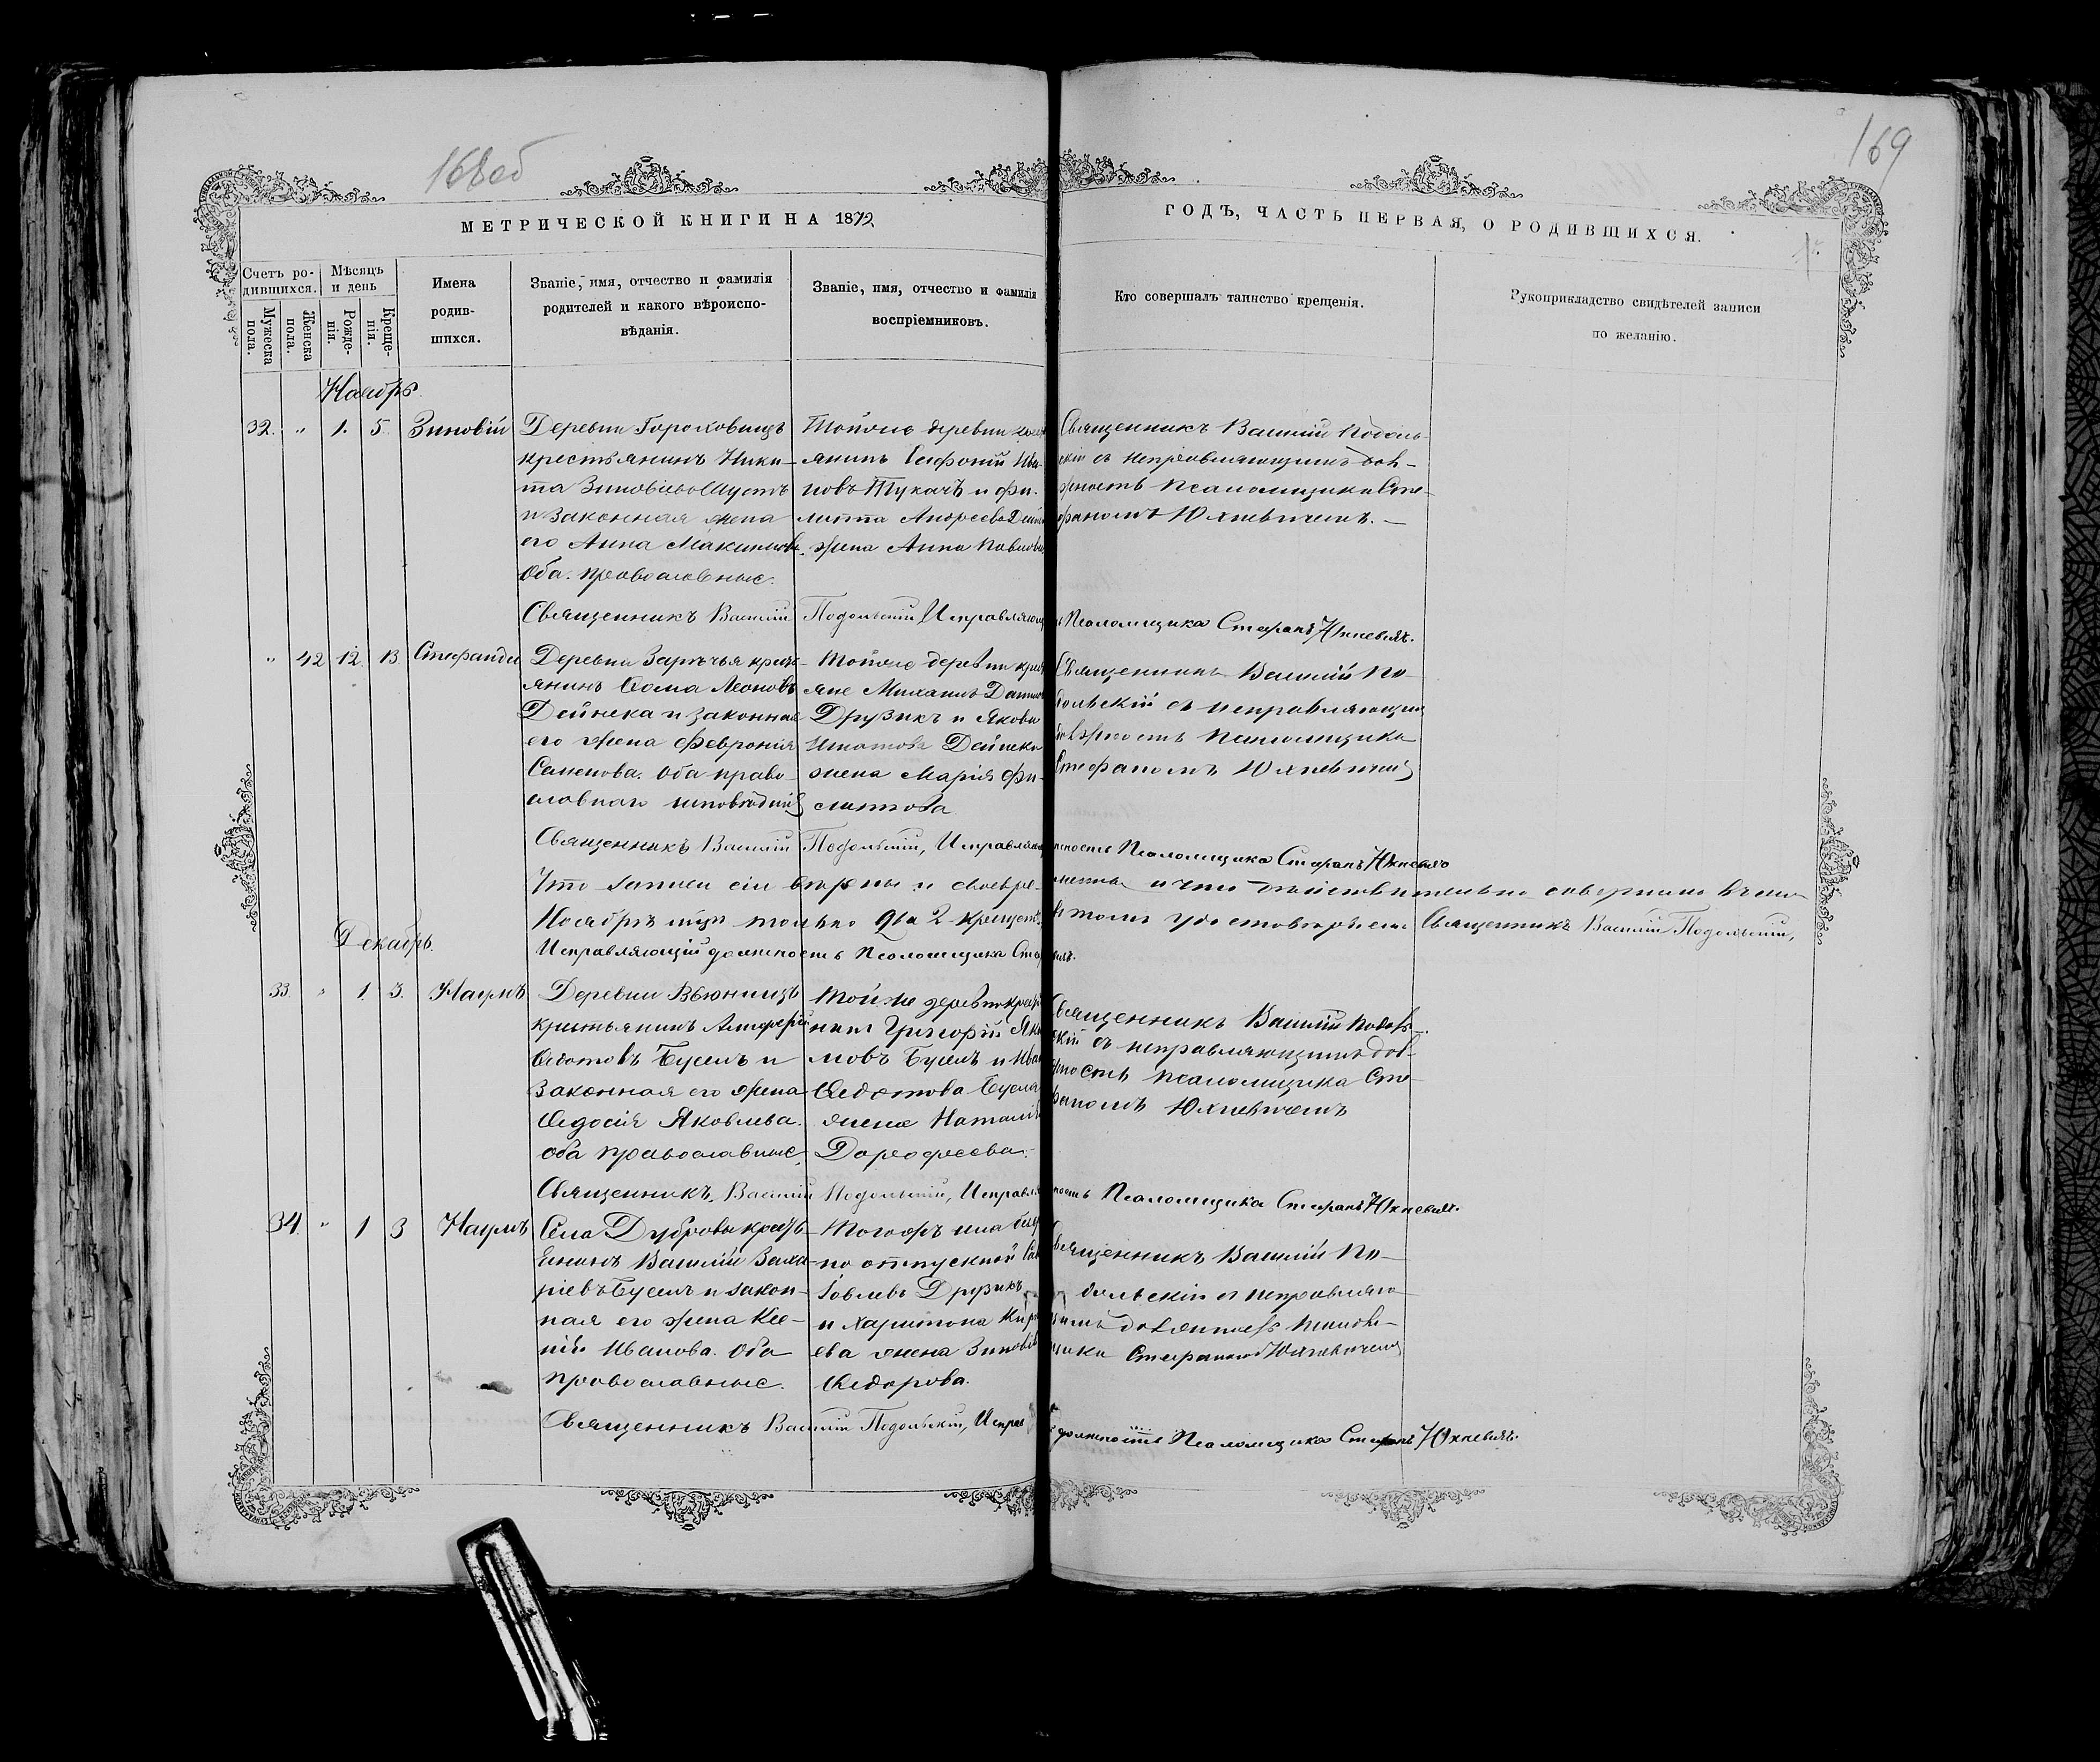 168об
169
МЕТРИЧЕСКОЙ КНИГИ НА 1872
ГОДЪ, ЧАСТЬ ПЕРВАЯ, О РОДИВШИХСЯ.
Счетъ ро-
дившихся.
Мужеска
пола.
Женска
пола.
Мѣсяцъ
и день
Рожде-
нія.
Креще-
нія.
Имена
родив-
шихся.
Званіе, имя, отчество и фамилія
родителей и какого вѣроиспо-
вѣданія.
Званіе, имя, отчество и фамилія
воспріемниковъ.
Кто совершалъ таинство крещенія.
Рукоприкладство свидѣтелей записи
по желанію.
Ноябрь.
32. " 1. 5. Зиновій
Деревни Гороховищъ
крестьянинъ Ники-
та Зиновіевъ Шустъ
и законная жена
его Анна Максимова.
Оба православные.
Тойже деревни
янинъ Ива-
новъ Тукачъ и Фи-
липпа Андреева
жена Анна Павлова
Священникъ Василій Подоль-
скій съ исправляющимъ долж-
ность псаломщика Сте-
фаномъ Юхневичемъ. —
Священникъ Василій Подольскій, Исправляющ
Псаломщика Стефанъ Юхневичъ.
" 42 12. 13. Стефанида
Деревни Зарѣчья крест-
янинъ Леоновъ
Дейнека и законная
его жена Феврония
Семенова. Оба право-
славнаго исповѣданія
Тойже деревни крест
яне Михаилъ
Друзикъ и Якова
Дейнека
жена Марія Фи-
липпова
Священникъ Василій По-
дольскій съ исправляющимъ
должность псаломщика
Стефаномъ Юхневичемъ
Священникъ Василій Подольскій, Исправляющ
ность Псаломщика Стефанъ Юхневичъ
Что записи сіи вѣрны и своевре-
менны и что дѣйствительно совершено въ
Ноябрѣ мцѣ только два 2 крещенія
въ томъ удостовѣряемъ Священникъ Василій Подольскій,
Исправляющій должность Псаломщика Стеф
Декабрь.
33. " 1. 3. Наумъ
Деревни Вьюнищъ
крестьянинъ
Федотовъ Буселъ и
законная его жена
Федосія Яковлева.
оба православные.
Тойже деревни крестья
нинъ Григорій Яко
Буселъ и Ива
Федотова Бусла
жена Наталія
Дорофеева.
Священникъ Василій Подоль-
скій съ исправляющимъ дол-
жность псаломщика Сте-
фаномъ Юхневичемъ
Священникъ Василій Подольскій, Исправля
ность Псаломщика Стефанъ Юхневичъ.
34. " 1 3 Наумъ
Села Дубровы крестья-
нинъ Василій Заха-
ріевъ Буселъ и закон-
ная его жена Ксе-
нія Иванова. Оба
православные.
Тогожъ села
по отпускной
Друзикъ
и Харитона
ева жена Зиновія
Федорова.
Священникъ Василій По-
дольскій съ исправляю-
щимъ должность псалом-
щика Стефаномъ Юхневичемъ
Священникъ Василій Подольскій, Исправ
должность Псаломщика Стефанъ Юхневичъ.